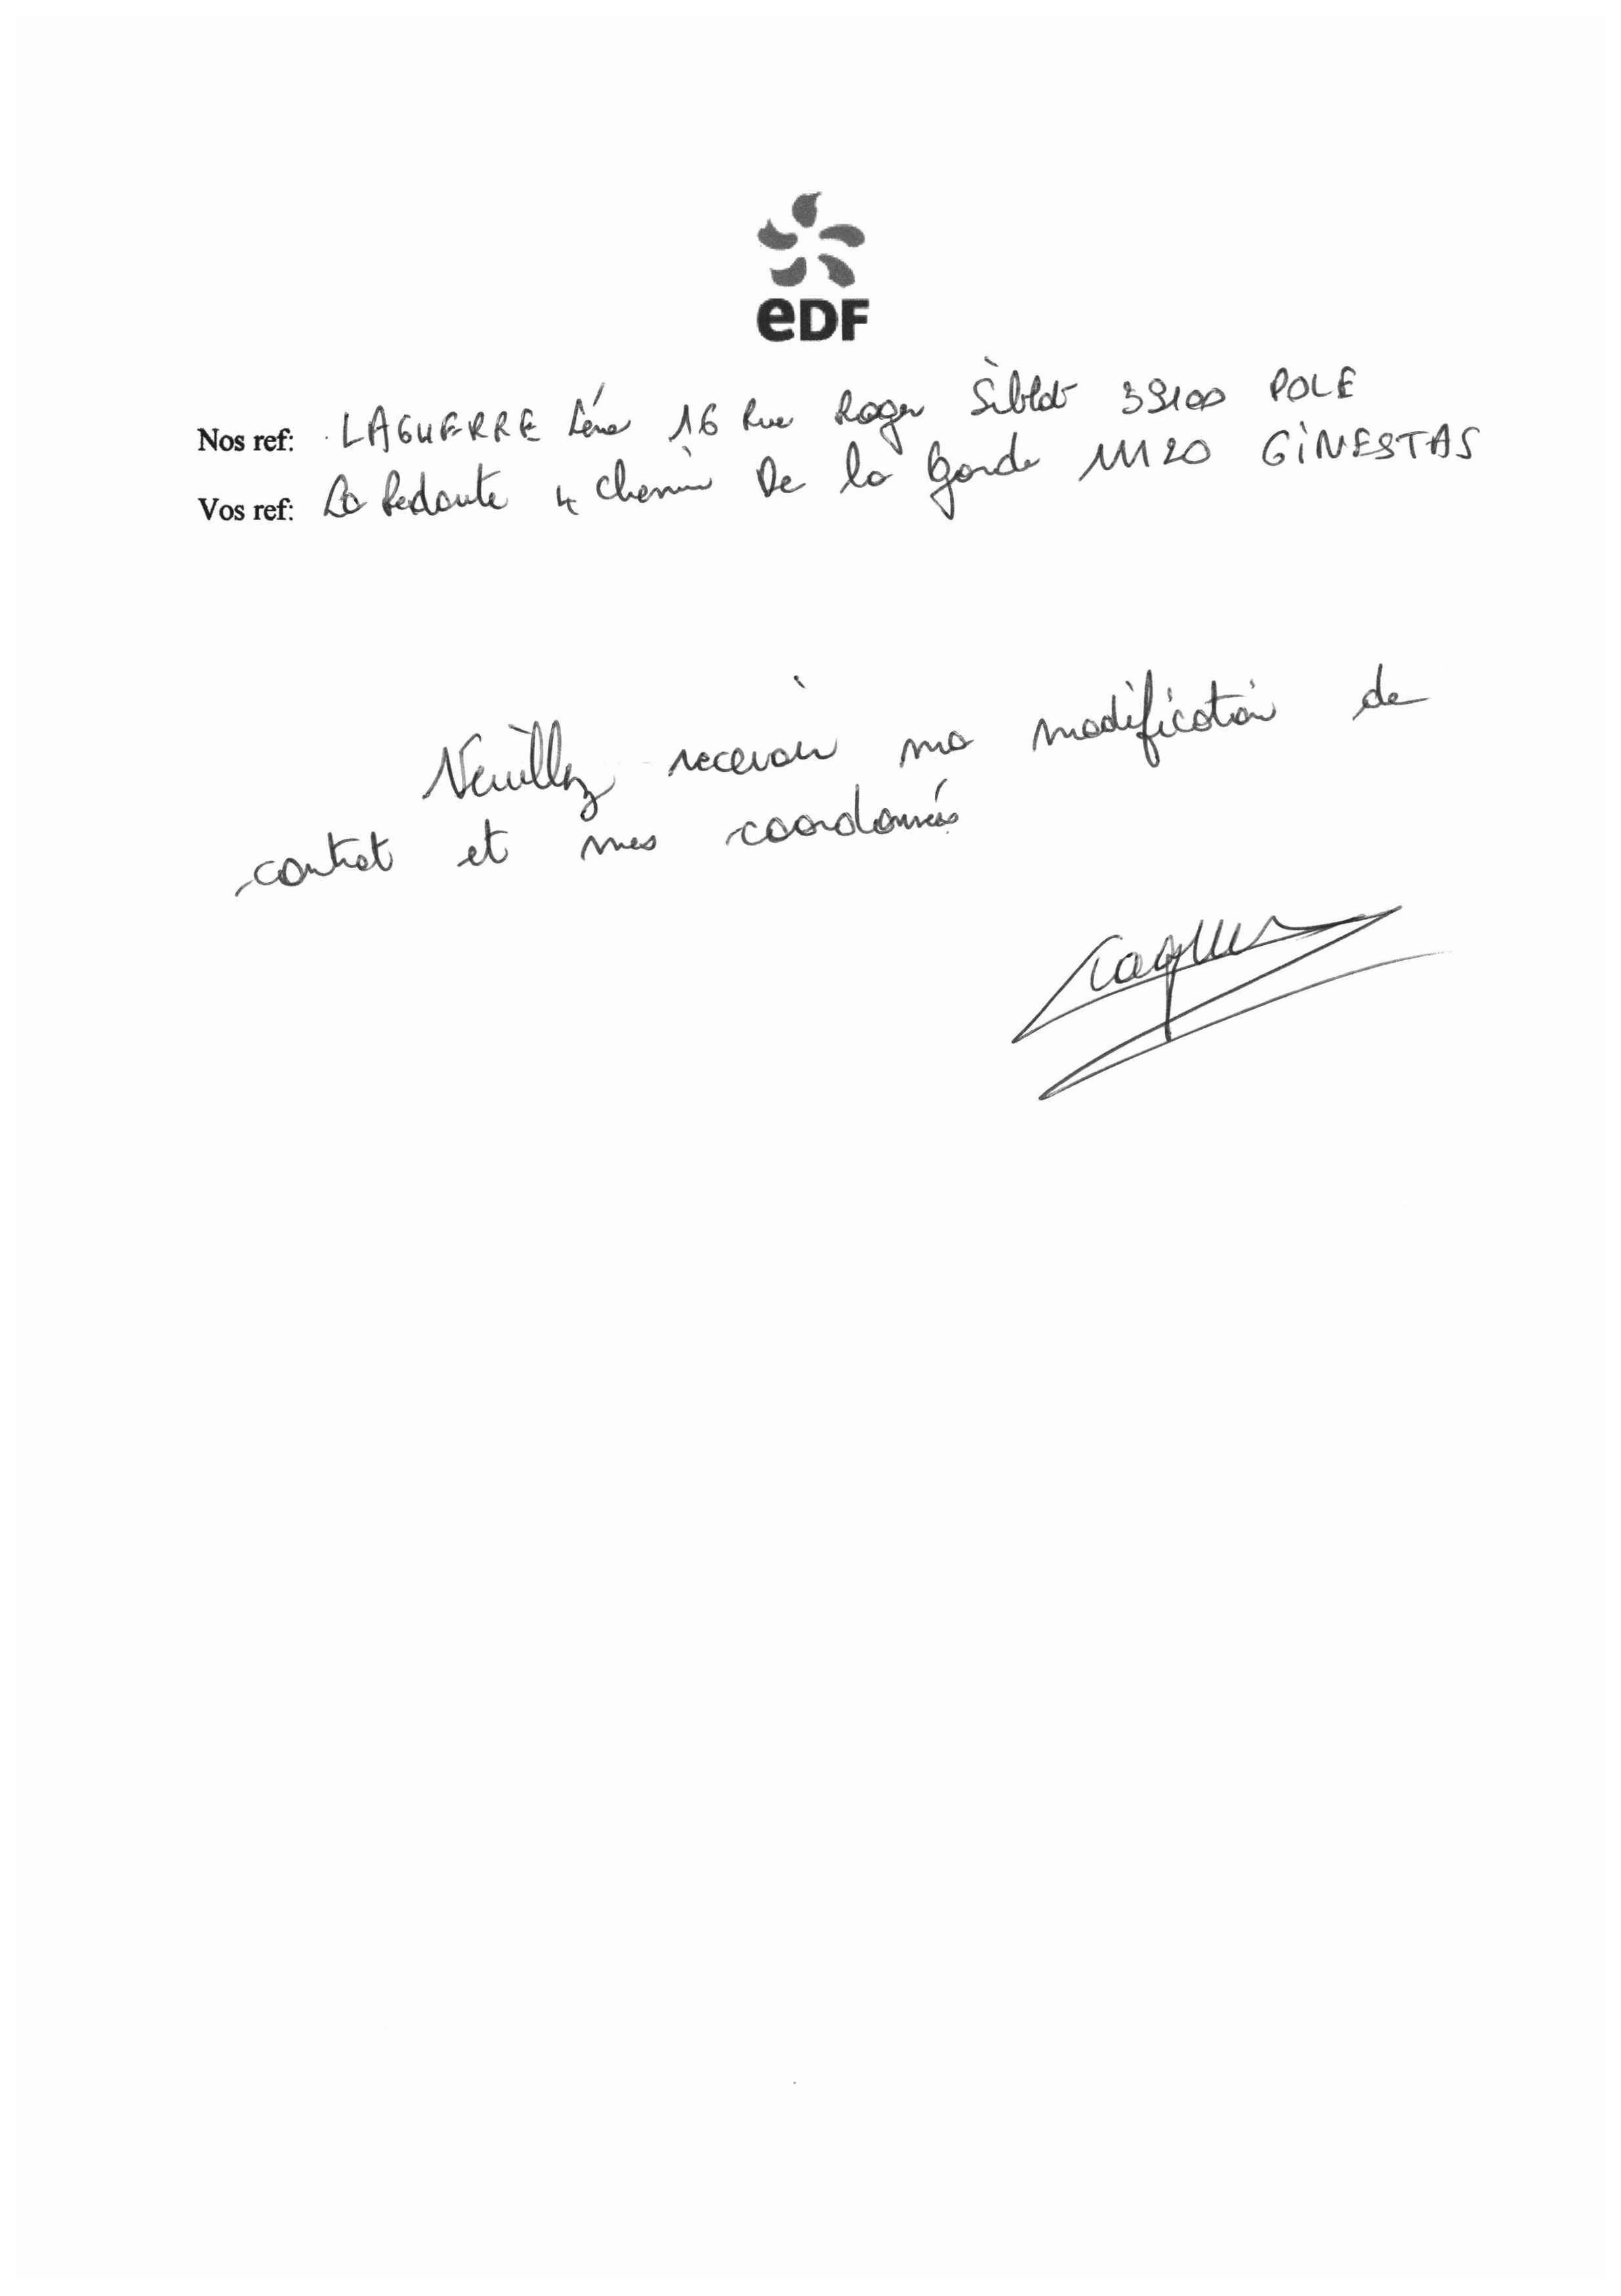 eDF
Nos ref: LAGUERRE Léna 16 Rue Roger Siblot 39100 POLE
Vos ref: La Redoute 4 chemin De la Garde 11120 GINESTAS
Veuillez recevoir ma modification de
contrat et mes coordonnés